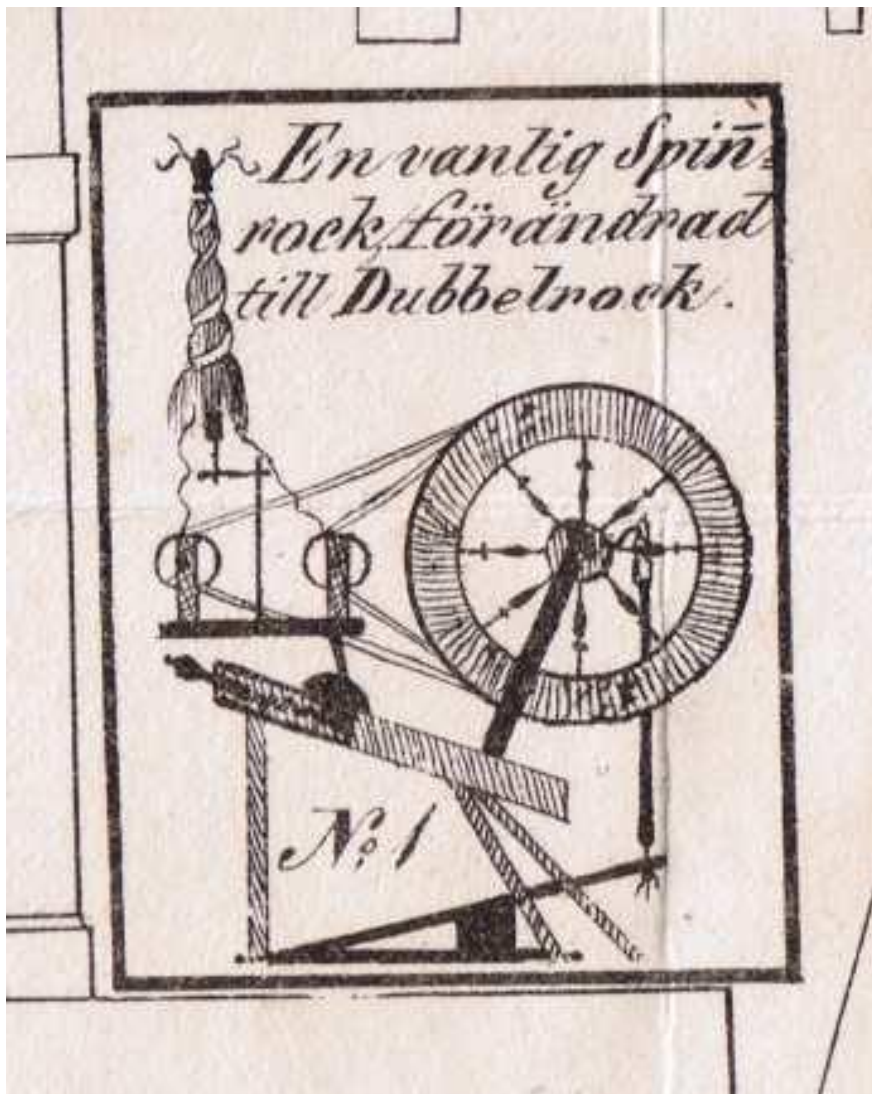 En vanlig Spin̄=
rock, förändrad
till Dubbelrock.
N.º 1